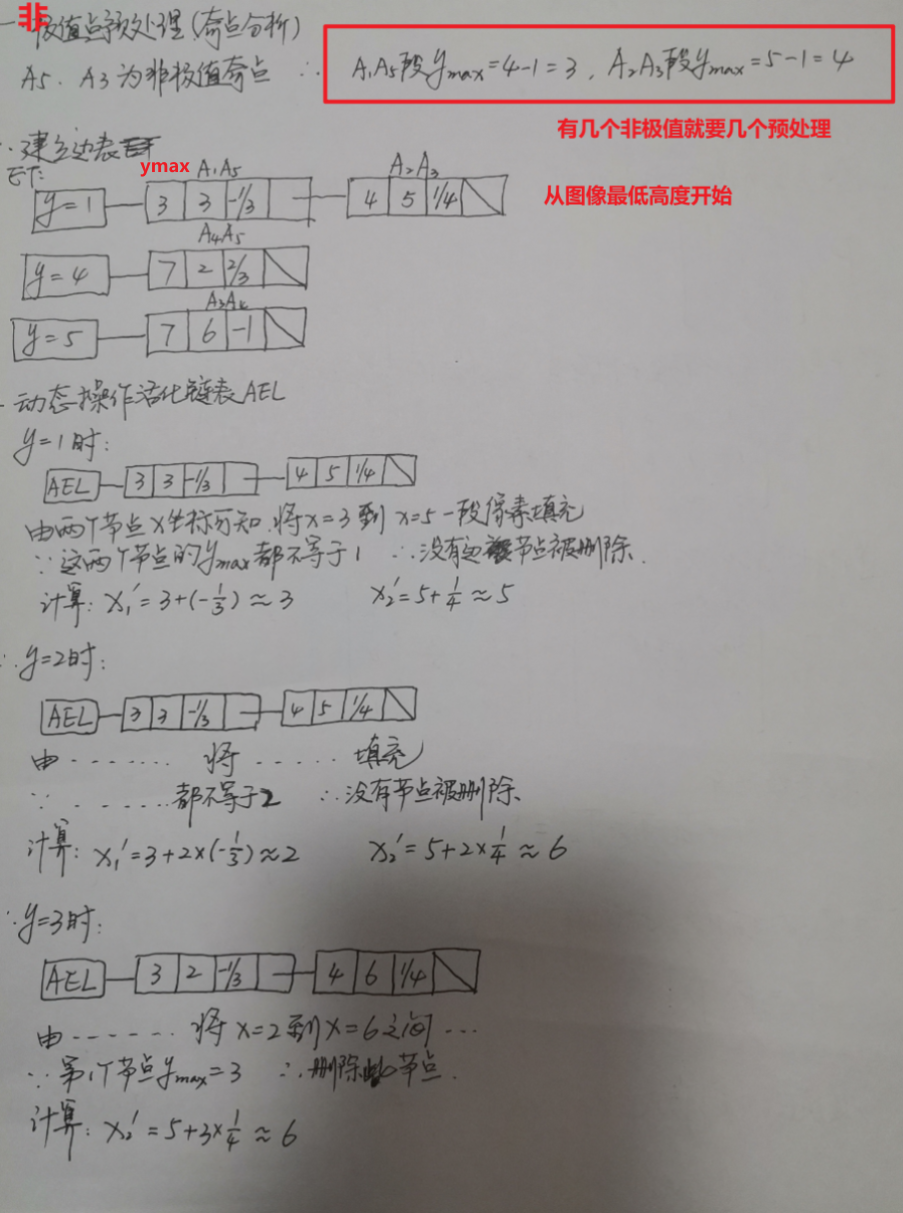 非
一 极值点预处理(奇点分析)
A5、A3为非极值奇点 ∴ A₁A₅段ymax=4-1=3,A₂A₃段ymax=5-1=4
有几个非极值就要几个预处理
建立边表
ET:
ymax A₁A₅ A₂A₃
y=1 3 3 -1/3 4 5 1/4
从图像最低高度开始
A₄A₅
y=4 7 2 2/3
y=5 7 6 -1
动态操作活化链表AEL
y=1时:
AEL 3 3 -1/3 4 5 1/4
由两个节点x坐标可知,将x=3到x=5一段像素填充
∵这两个节点的ymax都不等于1 ∴没有边节点被删除.
计算:x₁'=3+(-1/3)≈3 x₂'=5+1/4≈5
y=2时:
AEL 3 3 -1/3 4 5 1/4
由······· 将 ····· 填充
∵ ······都不等于2 ∴没有节点被删除
计算:x₁'=3+2×(-1/3)≈2 x₂'=5+2×1/4≈6
y=3时:
AEL 3 2 -1/3 4 6 1/4
由······ 将x=2到x=6之间···
∵第1个节点ymax=3 ∴删除此节点.
计算:x₂'=5+3×1/4≈6